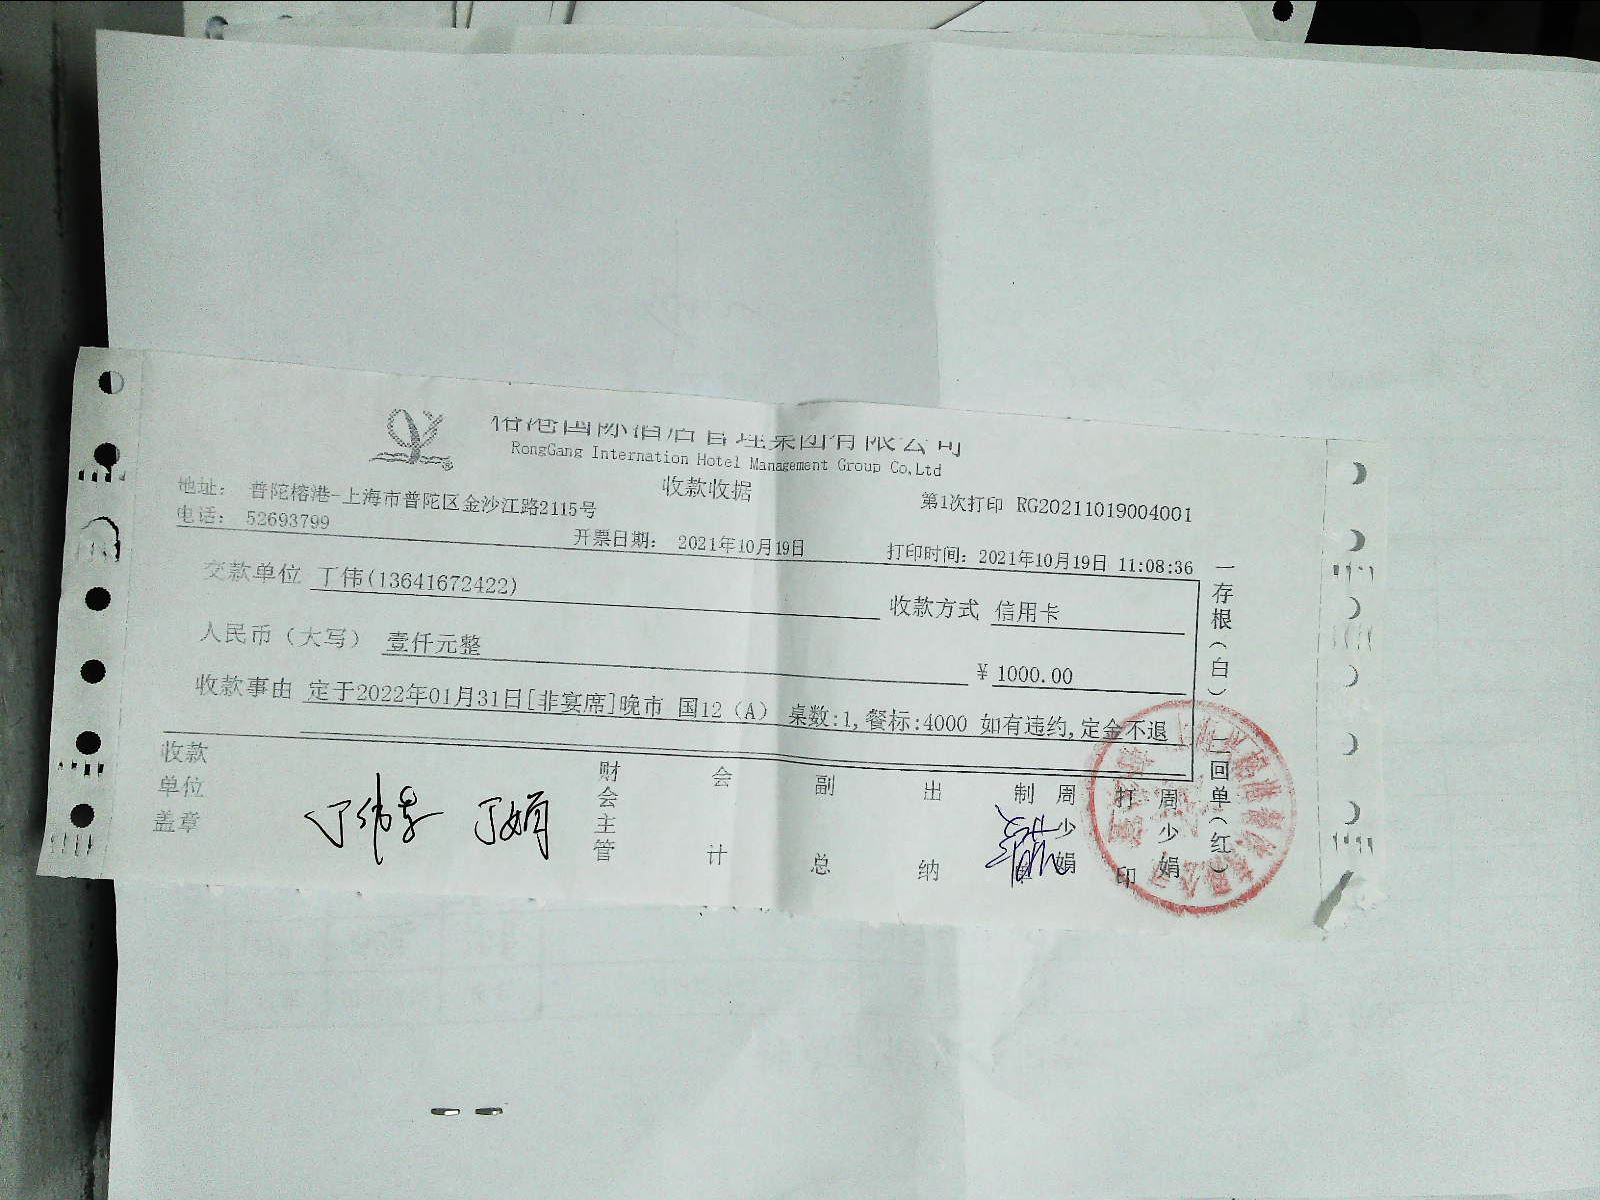 榕港国际酒店管理集团有限公司
RongGang Internation Hotel Management Group Co,Ltd
收款收据
地址： 普陀榕港-上海市普陀区金沙江路2115号
第1次打印 RG20211019004001
电话： 52693799
开票日期： 2021年10月19日
打印时间：2021年10月19日 11:08:36
交款单位 丁伟(13641672422)
收款方式 信用卡
人民币（大写） 壹仟元整
￥ 1000.00
收款事由 定于2022年01月31日[非宴席]晚市 国12（A） 桌数:1,餐标:4000 如有违约,定金不退
收款单位盖章
财会主管
会计
副总
出纳
制单
周少娟
打印
周少娟
一存根（白）
二回单（红）